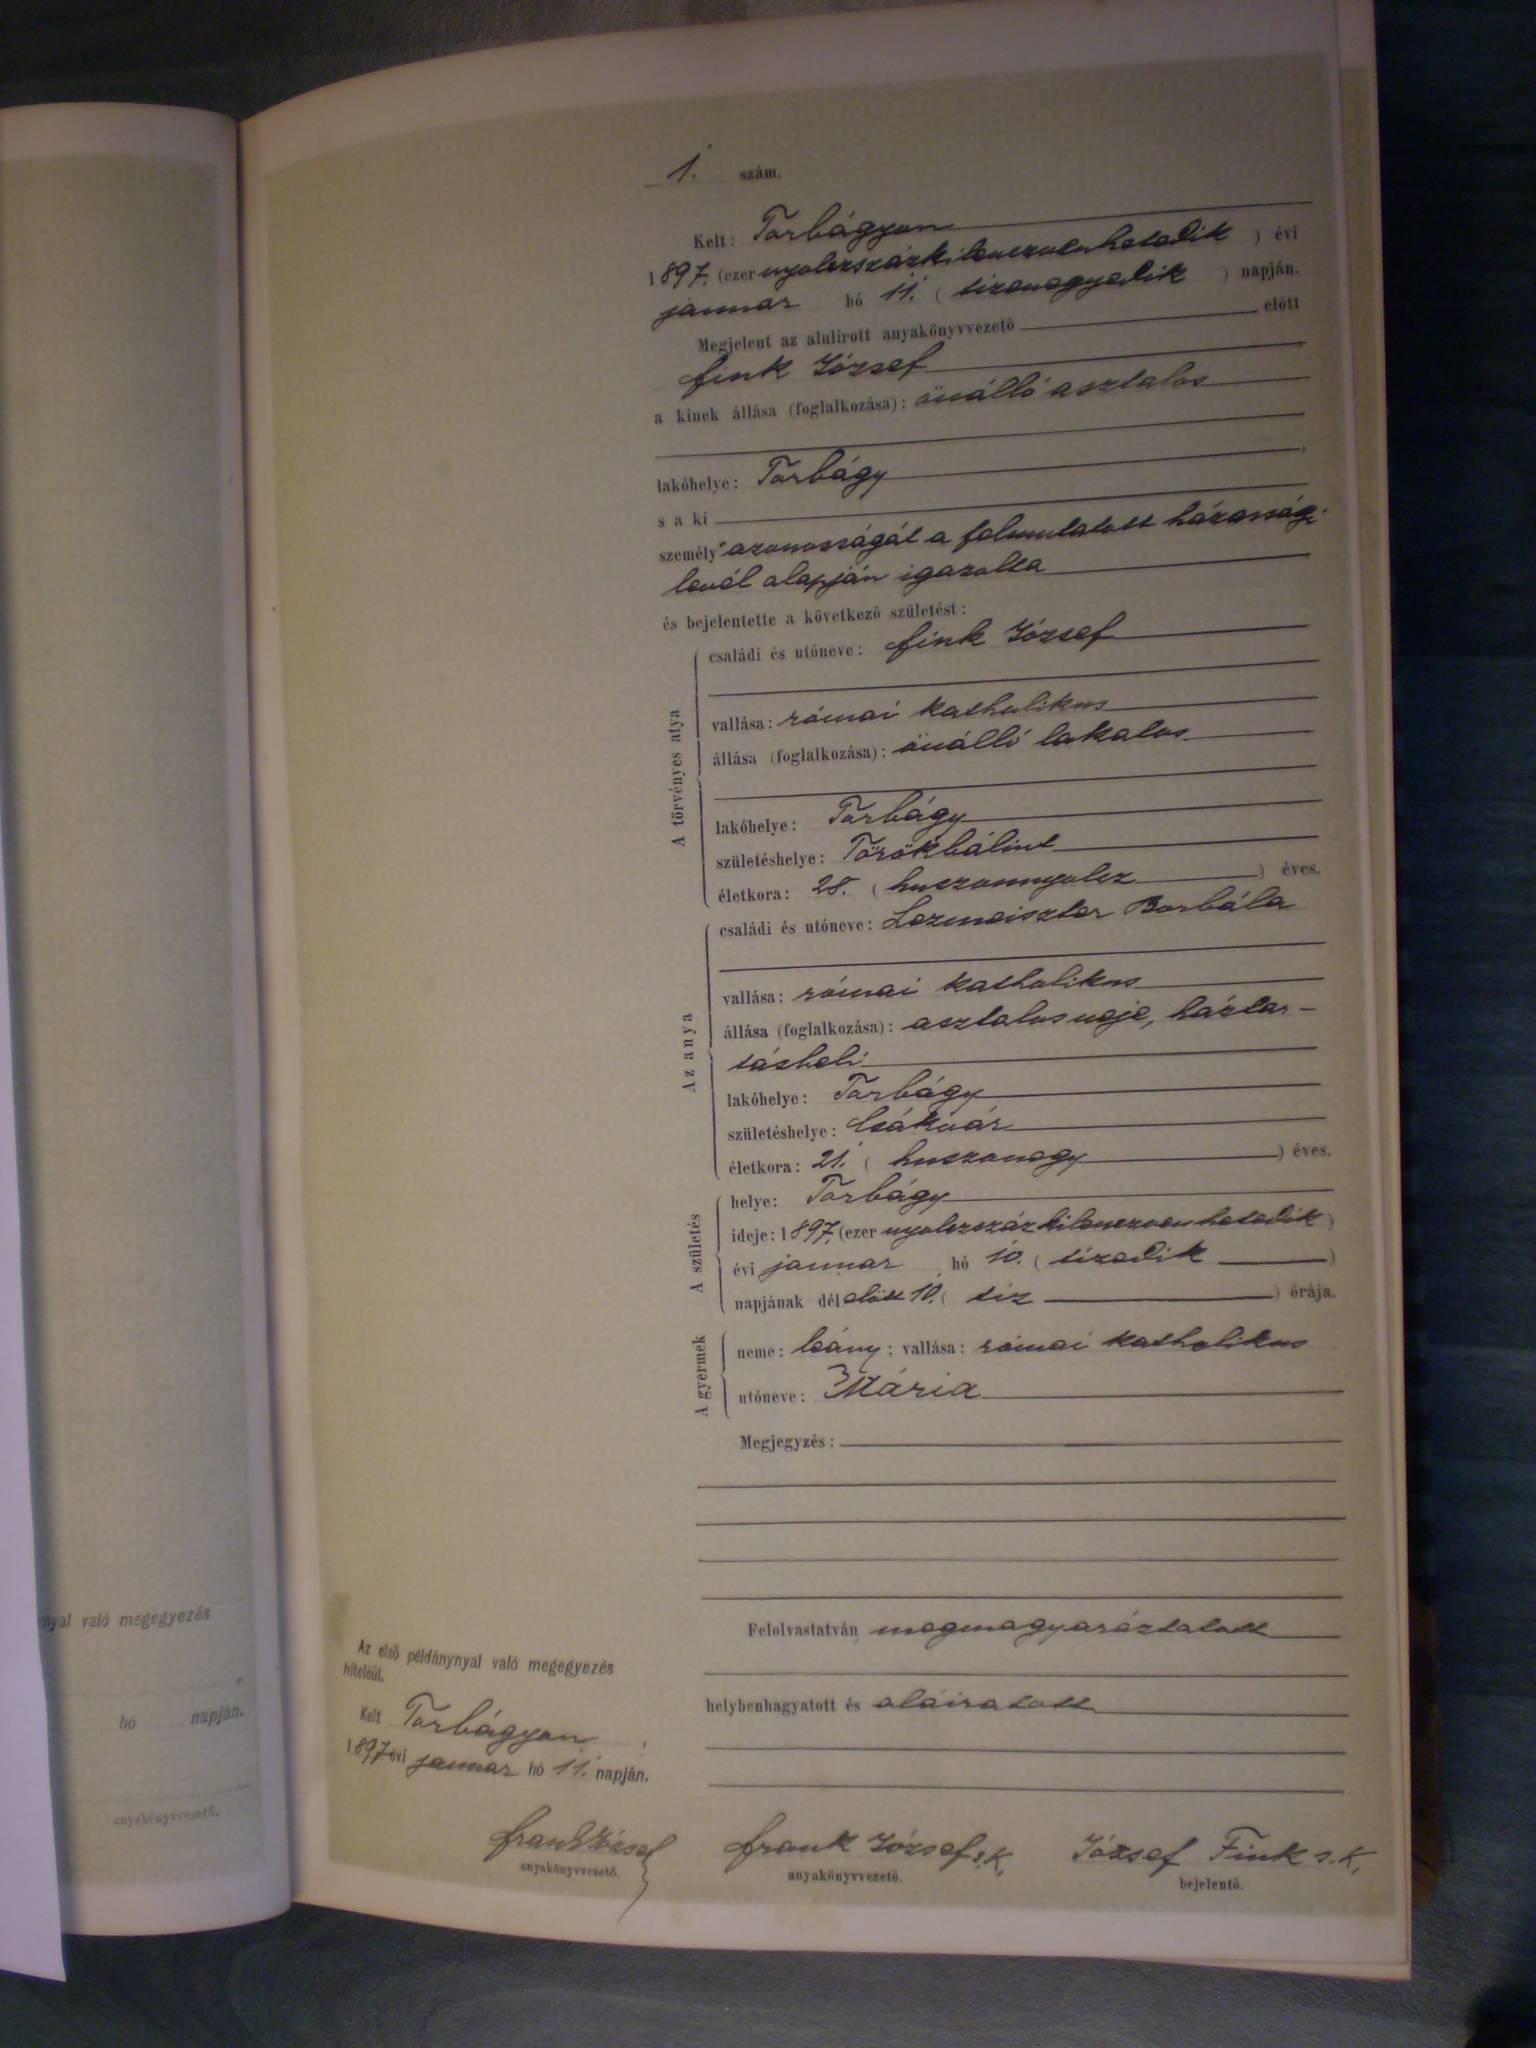 1. szám.
Kelt: Torbágyon
1897. (ezer nyolczszázkilenczvenhetedik) évi
januar hó 11. (tizenegyedik) napján.
Megjelent az alulirott anyakönyvvezető előtt
Fink József
a kinek állása (foglalkozása): önálló asztalos
lakóhelye: Torbágy
s a ki
személyazonosságát a felmutatott házassági
levél alapján igazolta
és bejelentette a következő születést:
A törvényes atya
családi és utóneve: Fink József
vallása: római katholikus
állása (foglalkozása): önálló lakatos
lakóhelye: Torbágy
születéshelye: Törökbálint
életkora: 28. (huszonnyolcz) éves.
Az anya
családi és utóneve: Lezmeiszter Borbála
vallása: római katholikus
állása (foglalkozása): asztalos neje, háztar-
tásbeli
lakóhelye: Torbágy
születéshelye: Csákvár
életkora: 21. (huszonegy) éves.
A születés
helye: Torbágy
ideje: 1897. (ezer nyolczszáz kilenczven hetedik)
évi januar hó 10. (tizedik)
napjának délelőtt 10. (tiz) órája.
A gyermek
neme: leány; vallása: római katholikus
utóneve: Mária
Megjegyzés:
Felolvastatván megmagyaráztatott
helybenhagyatott és aláiratott
Az első példánynyal való megegyezés
hiteléül.
Kelt Torbágyon,
1897 évi januar hó 11. napján.
Frank József
anyakönyvvezető.
Frank József s.K,
anyakönyvvezető.
József Fink s.K,
bejelentő.
nyal való megegyezés
hó napján.
anyakönyvvezető.